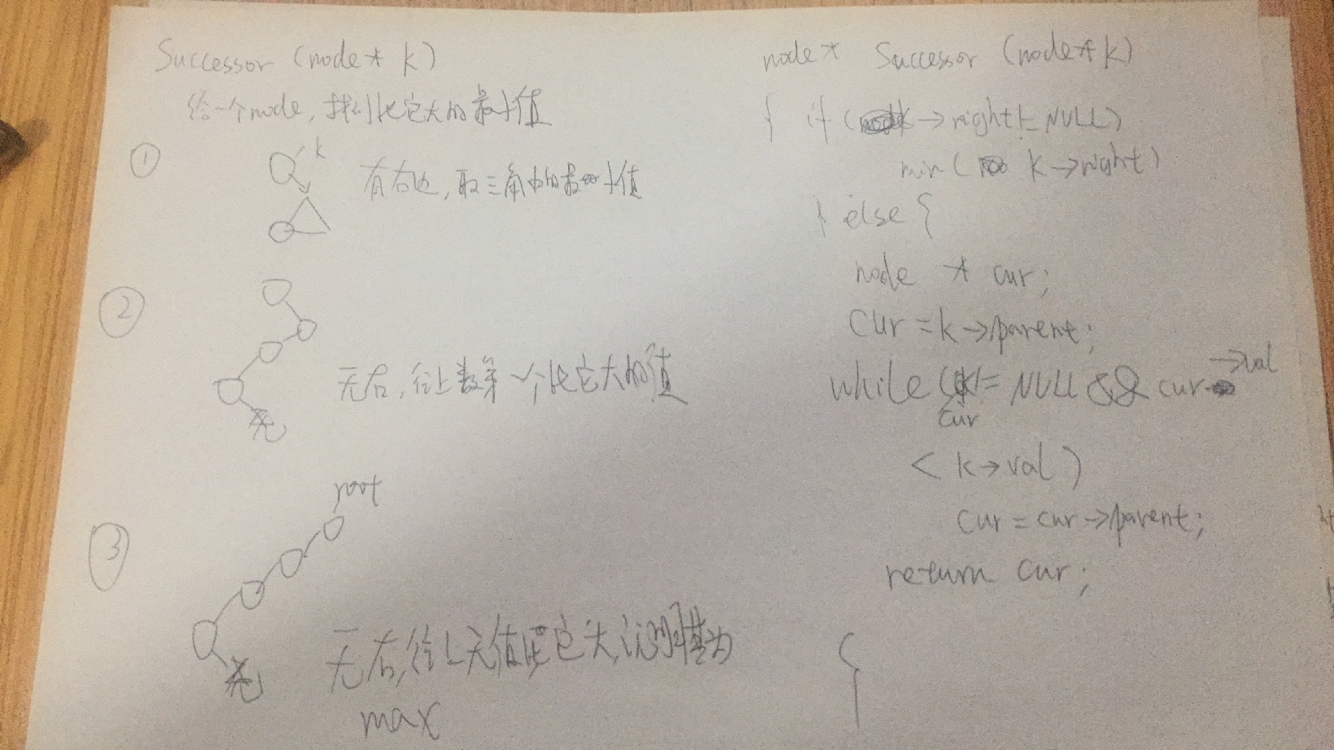 Successor (node* k)
给一个node,找到比它大的最小值
① k
有右边,取三角中的最小值
②
无右,往上数第一个比它大的值
无
③ root
无右,往上无值比它大,说明其为
max
无
node* Successor (node* k)
{ if (k→right != NULL)
min( k→right)
} else {
node * cur;
cur = k→parent;
while (cur != NULL && cur→val
< k→val)
cur = cur→parent;
return cur;
}